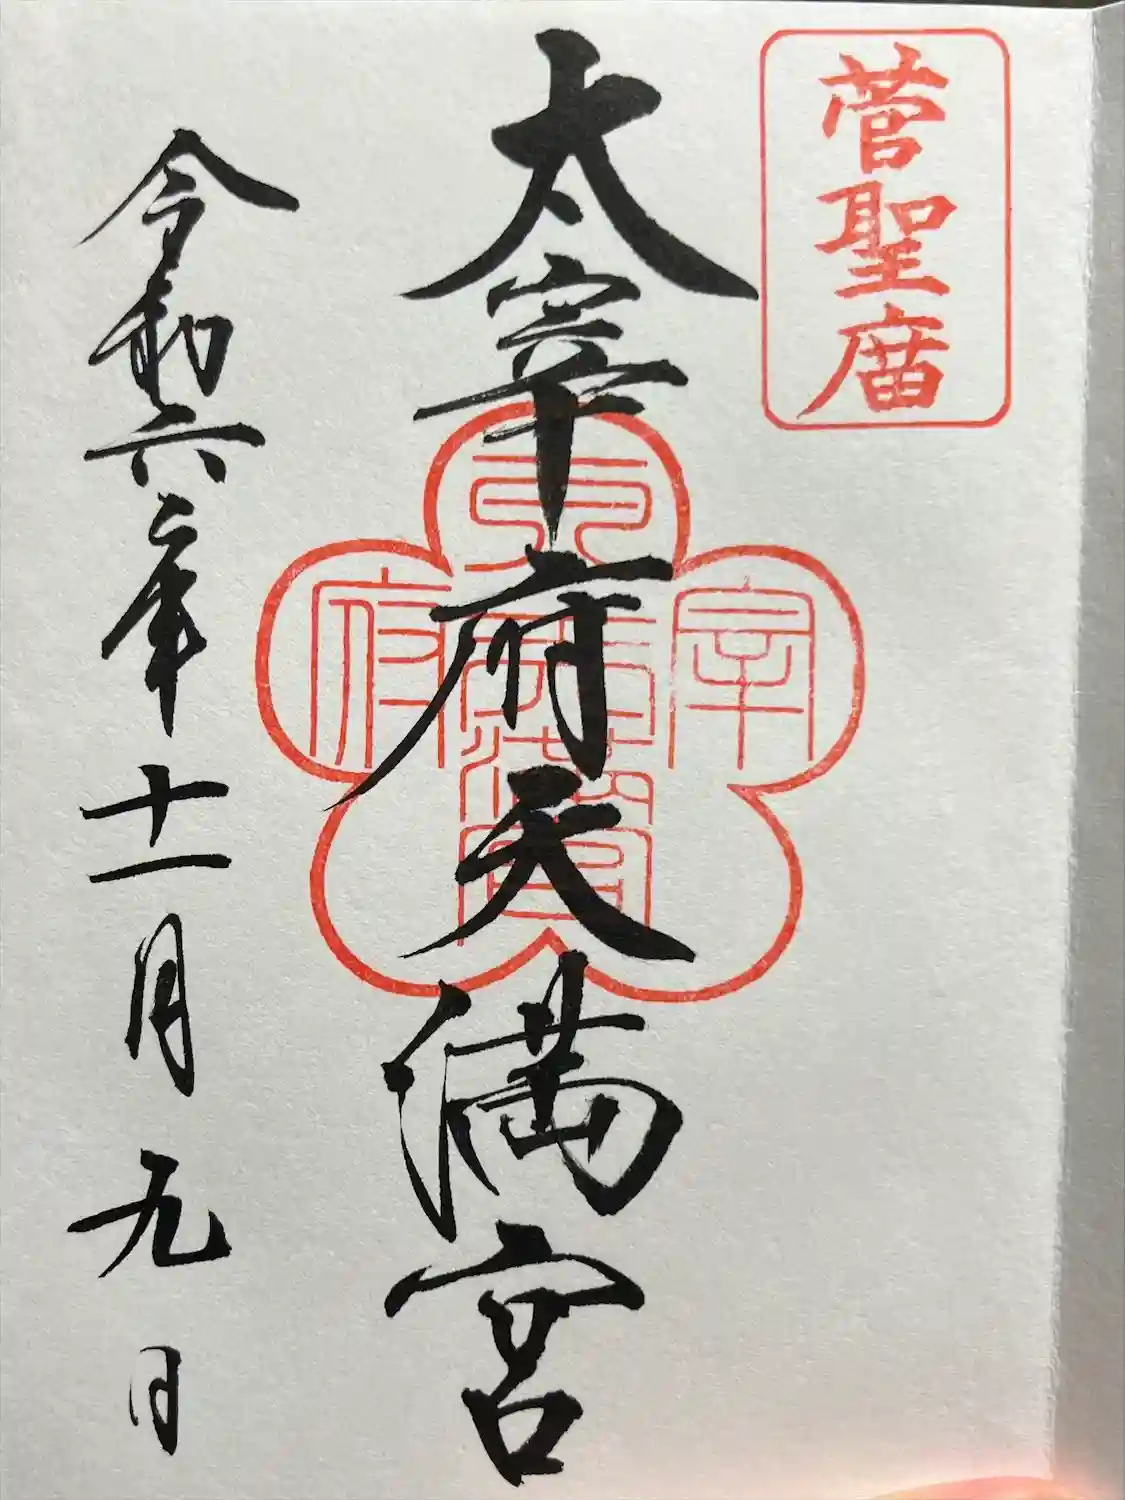 菅聖庿
太宰府天満宮
令和六年十一月九日